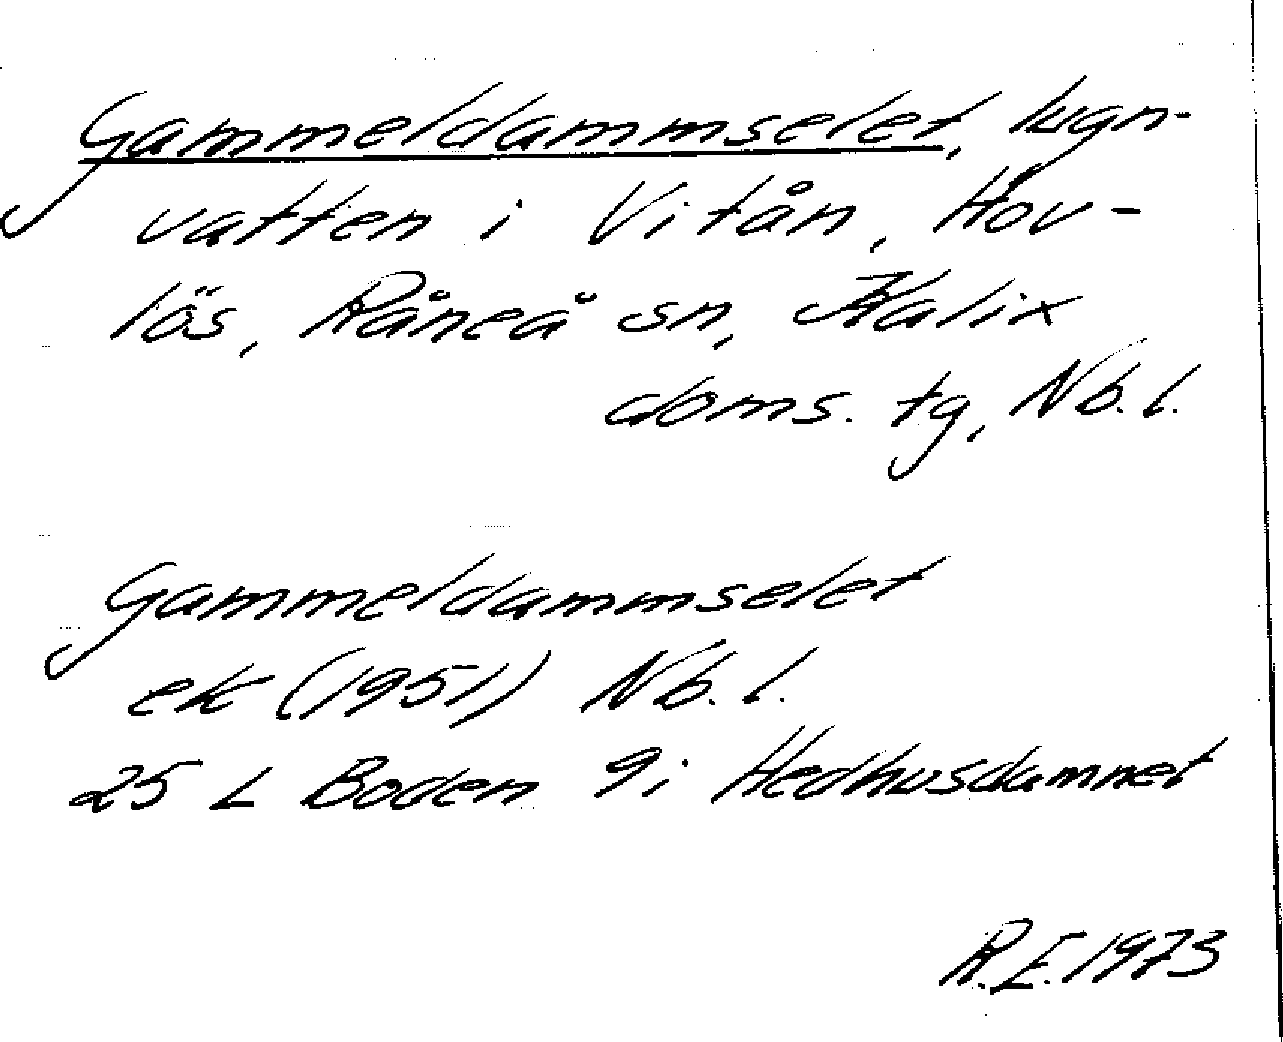 Gammeldammselet, lugn-
vatten i Vitån, Hov-
lös, Råneå sn, Kalix
doms. tg, Nb. l.
Gammeldammselet
ek (1951) Nb. l.
25 L Boden 9i Hedhusdamnet
R.E. 1973